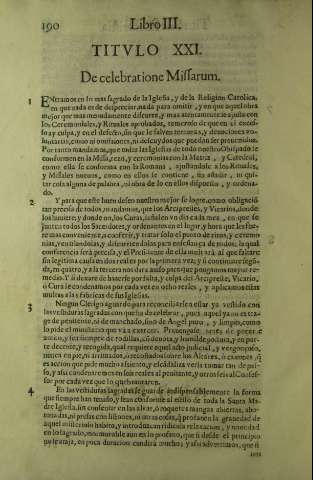 190 Libro III.
TITVLO XXI.
De celebratione Missarum.
1 ENtramos en lo mas sagrado de la Iglesia, y de la Religion Catolica,
en que nada es de despreciar, nada para omitir, y en que aquel obra
mejor que mas menudamente discurre, y mas atentamente se ajusta con
los Ceremoniales, y Rituales aprobados, temeroso de que en el
so ay culpa, y en el defecto, sin que le salven ternuras, y devociones vo-
luntarias, como ni omissiones, ni descuydos que puedan ser prevenidos.
Por tanto mandamos, que todas las Iglesias de todo nuestro Obispado se
conformen en la Missa, rezo, y ceremonias con la Matriz, y Catedral,
como ella se conforma con la Romana, ajustandose a los Rituales,
y Missales nuevos, como en ellos se contiene, sin añadir, ni qui-
tar cosa alguna de palabra, ni obra de lo en ellos dispuesto, y ordena-
do.
2 Y para que este buen deseo nuestro mejor se logre, como obligació
tan precisa de todos, ordenamos, que los Arciprestes, y Vicarios, donde
los huviere, y donde no, los Curas, señalen vn dia cada mes, en que se
junten todos los Sacerdotes, y ordenantes en el lugar, y hora que les fue-
re mas conveniente, a conferir, y tratar solo el punto de ritos, y ceremo-
nias, ventilandolas, y discurriendolas para enseñança de todos; la qual
conferencia será precisa, y el Presidente de ella multará al que faltare
sin legitima causa en dos reales por la primera vez, y si continuare segun-
da, en quatro, y a la tercera nos dará aviso para que pongamos mejor re-
medio: Y si dexare de hazerse por falta, y culpa del Arcipreste, Vicario,
ò Cura le condenamos por cada vez en ocho reales, y aplicamos estas
multas a las fabricas de sus Iglesias.
3 Ningun Clerigo aguarde para reconciliarse a estar ya vestido con
las vestiduras sagradas con que ha de celebrar, pues aquel ya no es tra-
ge de penitente, ni de manchado, sino de Angel puro, y limpio, como
lo pide el ministerio que va a exercer. Prevengase antes de poner
, y sea siempre de rodillas, có devota, y humilde postura, y en par-
te decente, y recogida, qual requiere aquel acto judicial, y vergonçoso,
nunca en pie, ni arrimados, ò recostados sobre los Altares, ò caxones, q
es accion que pide mucho assiento, y el caldalia verla tomar tan de pas-
so, y assi condenamos en seis reales al penitente, y otros seis al Confes-
sor por cada vez que lo quebrantaren.
4 En las vestiduras sagradas se guarde indispensablemente la forma
que siempre han tenido, y sean conforme al estilo de toda la Santa Ma-
dre Iglesia, sin consentir en las alvas, ò roquetes mangas abiertas, abo-
tonadas, ni presas con listones, ni otras cosas, q profanen la gravedad de
aquel misterioso habito, y introduzcan ridicula relaxacion, y novedad
en lo sagrado, no memorable aun en lo profano, que si desde el principio
no se ataja, en poca duracion cundirá mucho; y assi advertimos, que si